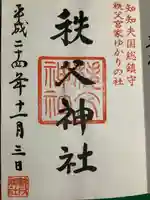 知知夫国総鎮守
秩父宮家ゆかりの社
秩父神社
平成二十四年十一月三日